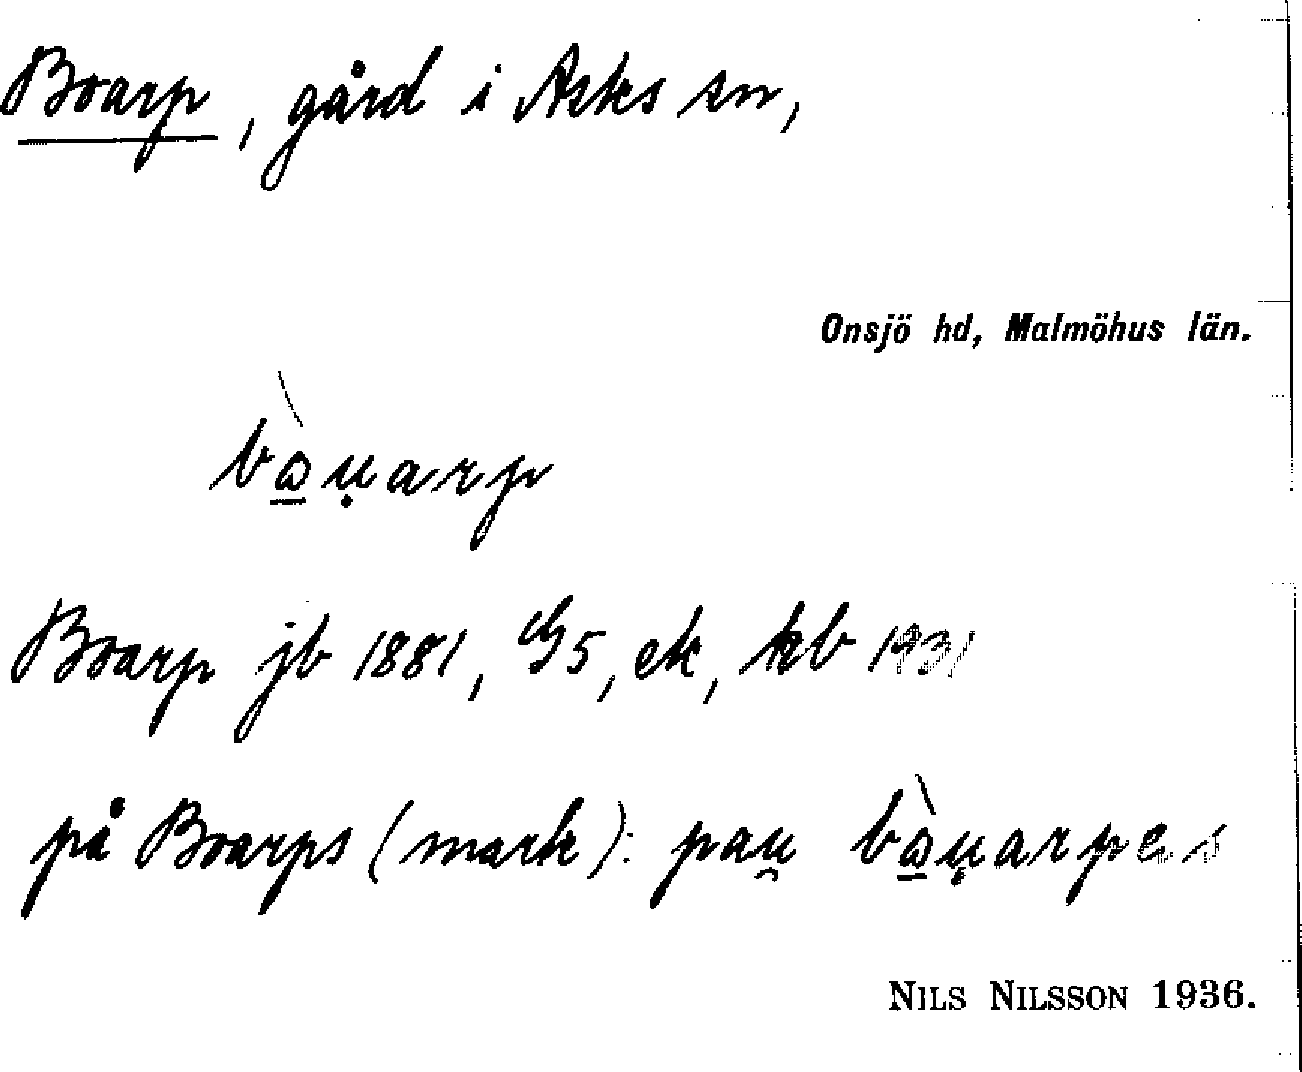 Boarp, gård i Asks sn,
Onsjö hd, Malmöhus län.
bàu̩arp
Boarp jb 1881, G5, ek, kb 1931
på Boarps (mark): pau̯ bàu̩arpes
NILS NILSSON 1936.